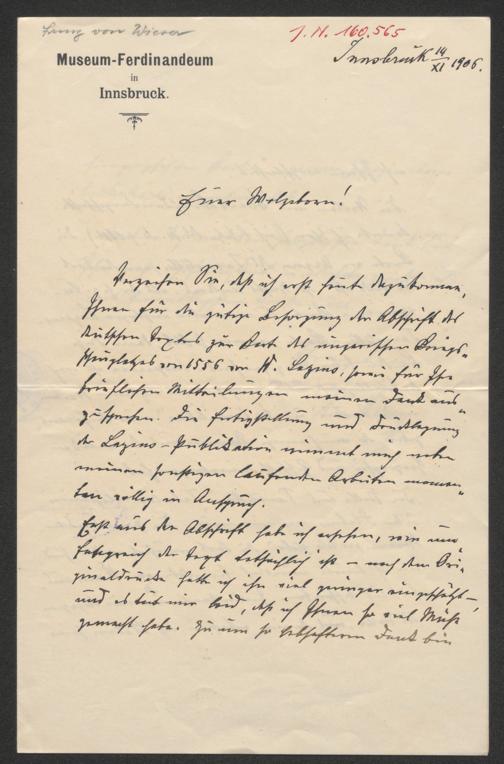 Franz von Wieser
J. N. 160.565
Museum-Ferdinandeum
in
Innsbruck.
Innsbruck 14/XI 1906.
Euer Wolgeborn!
Verzeihen Sie, daß ich erst heute dazukomme,
Ihnen für die gütige Besorgung der Abschrift des
deutschen Textes zur Karte des ungarischen Kriegs-
Schauplatzes von 1556 von W. Lazius, sowie für Ihre
brieflichen Mitteilungen meinen Dank aus-
zusprechen. Die Fertigstellung und Drucklegung
der Lazius-Publikation nimmt mich neben
meinen sonstigen laufenden Arbeiten momen-
tan völlig in Anspruch.
Erst aus der Abschrift habe ich ersehen, wie um-
fangreich der Text tatsächlich ist – nach dem Ori-
ginaldrucke hatte ich ihn viel geringer eingeschätzt –,
und es tut mir leid, daß ich Ihnen so viel Mühe
gemacht habe. Zu um so lebhafterem Dank bin